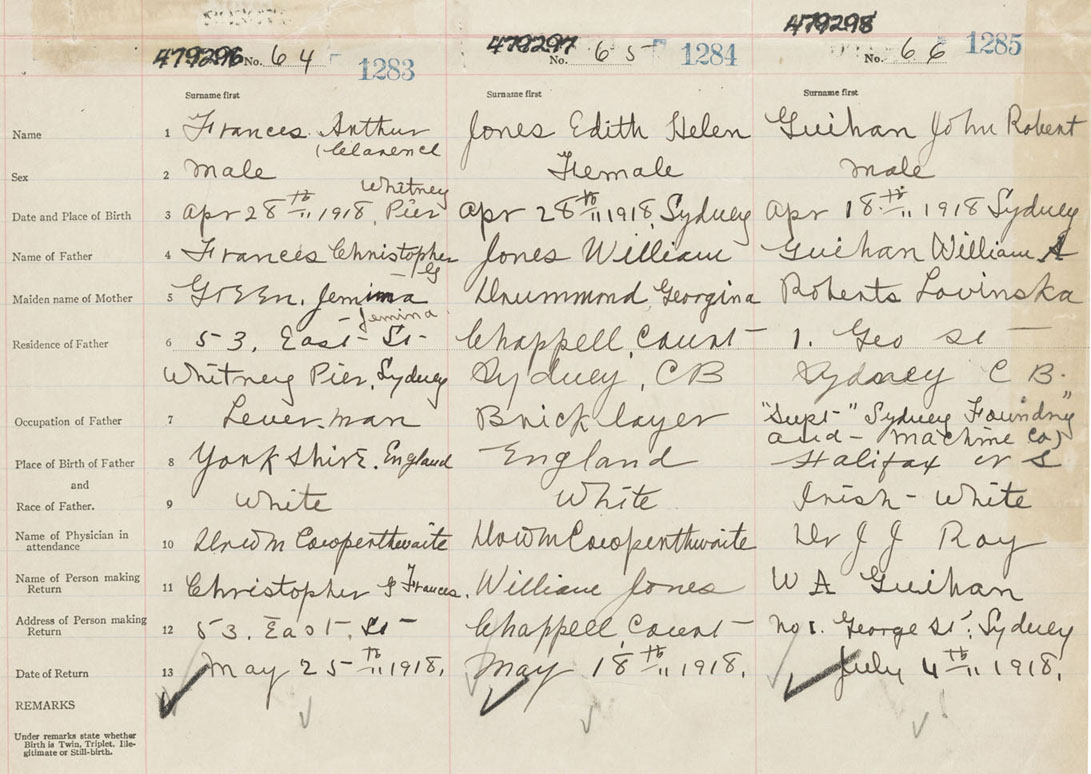 479296 No. 64 1283 479297 No. 65 1284 479298 No. 66 1285
Surname first Surname first Surname first
Name 1 Frances Arthur Jones Edith Helen Guihan John Robert
(Clarence
Sex 2 Male Female Male
Whitney
Date and Place of Birth 3 Apr 28th 1918, Pier Apr 28th 1918, Sydney Apr 18th 1918 Sydney
Name of Father 4 Frances Christopher Jones William Guihan William A
– G
Maiden name of Mother 5 Green, Jemima Drummond, Georgina Roberts Lovinska
– Jemina
Residence of Father 6 53, East St Chappell, Court 1. Geo St
Whitney Pier, Sydney Sydney, CB Sydney C B.
Occupation of Father 7 Lever man Brick layer "Supt" Sydney Foundry"
and – Machine Co)
Place of Birth of Father 8 Yorkshire, England England Halifax N S
and
Race of Father. 9 White White Irish – White
Name of Physician in
attendance 10 Cowperthwaite Cowperthwaite Dr J J Roy
Name of Person making
Return 11 Christopher G Frances. William Jones W A Guihan
Address of Person making
Return 12 53. East. St – Chappell Court No 1. George St, Sydney
Date of Return 13 May 25th 1918. May 18th 1918. July 4th 1918.
REMARKS
Under remarks state whether
Birth is Twin, Triplet, Ille-
gitimate or Still-birth.